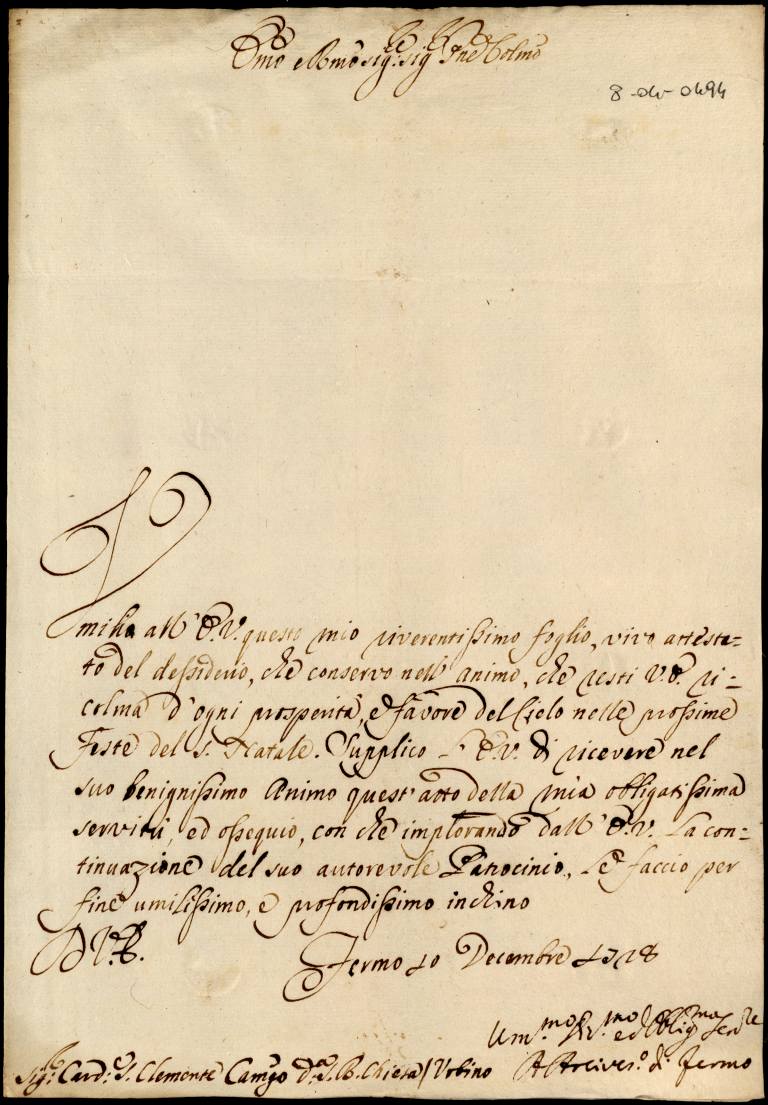 Emo e Rmo Sig.re Sig.r Pne Colmo
8-div-0494
Umilia all' E.V. questo mio riverentissimo foglio, vivo attesta=
to del dessiderio, che conservo nell' animo, che resti V.E. ri=
colma d'ogni prosperità, e favore del Cielo nelle prossime
Feste del S. Natale. Supplico L'E.V. di ricevere nel
suo benignissimo Animo quest'atto della mia obligatissima
servitù, ed ossequio, con che implorando dall' E.V. La con=
tinuazione del suo autorevole Patrocinio, Le faccio per
fine umilissimo, e profondissimo inchino
D V.E.
Fermo 10 Decembre 1718
Um.mo Ser.re
Sig.r Card. S. Clemente Camgo D.a S. R. Chiesa / Urbino
A Arcives.o di Fermo